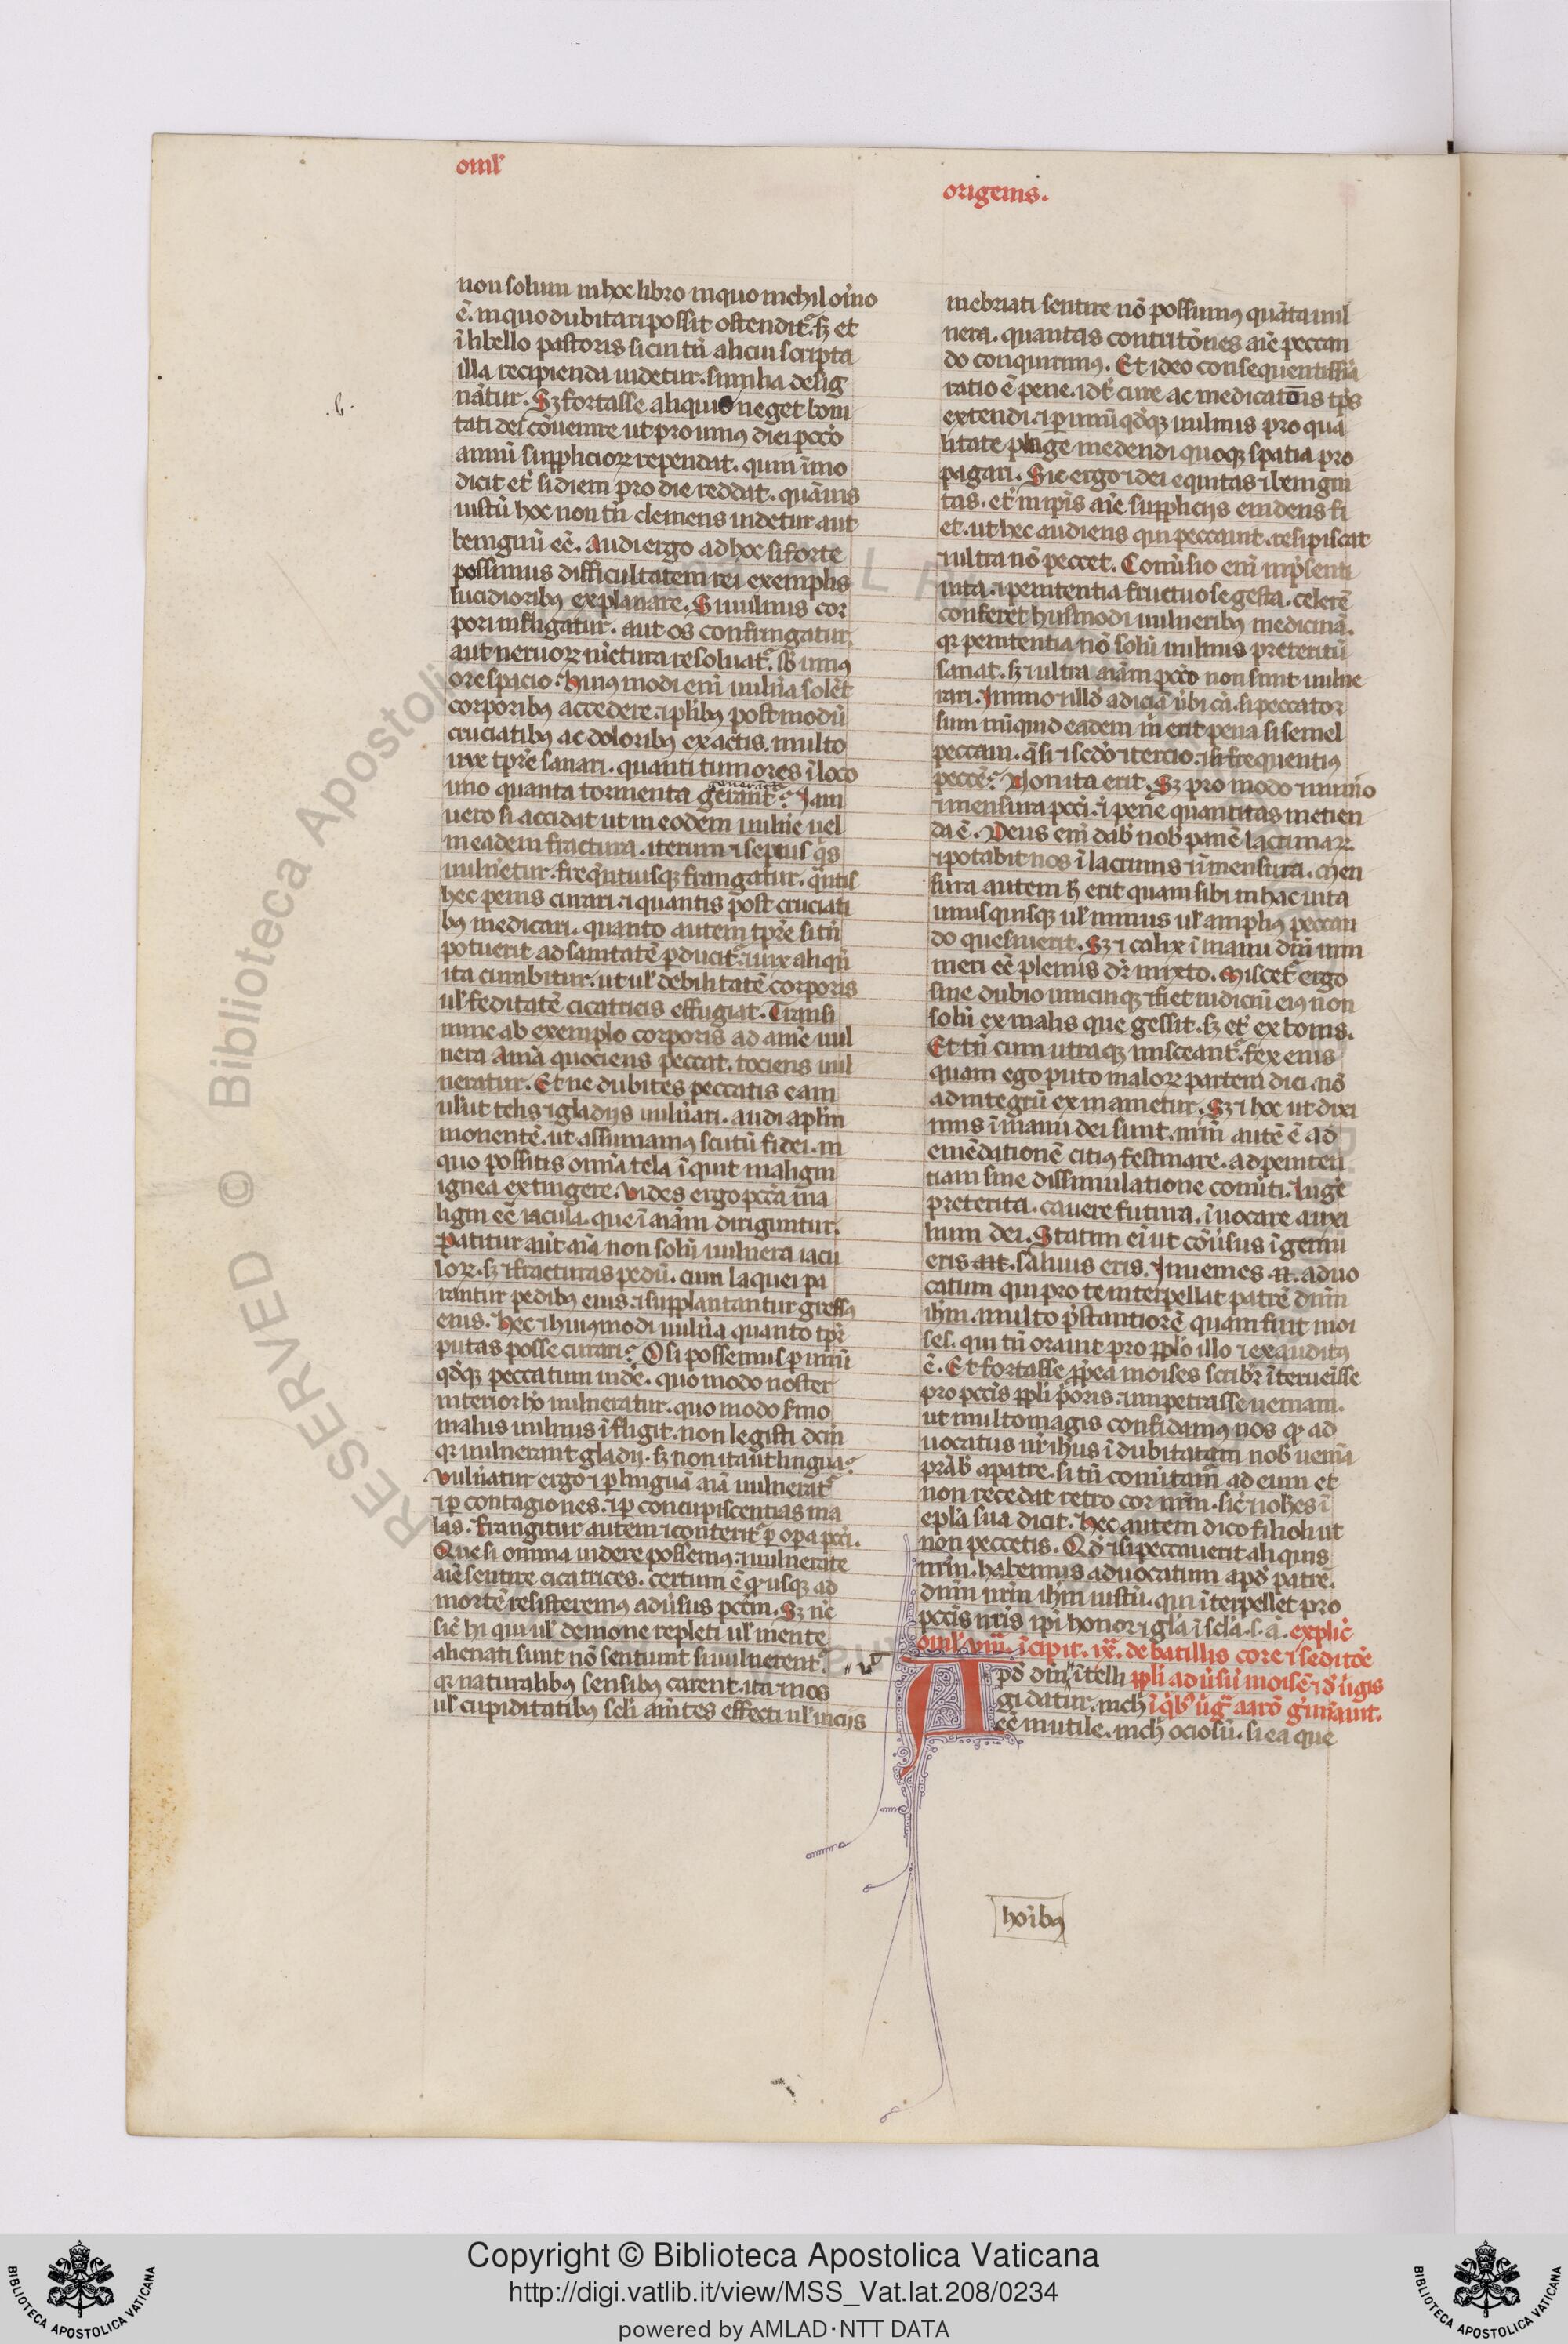 omł
origenis.
non solum in hoc libro in quo nichil oīno
ē. in quo dubitari possit ostendit᷑. sꝫ et
ī libello pastoris si cui tn̄ alicui scripta
illa recipienda uidetur. similia desig
nātur. Sꝫ fortasse aliquis neget boni
tati dei cōuenire ut pro unius diei pccō
anni suppliciorꝝ rependat. quin īmo
dicit et̄ si diem pro die reddat. quāuis
iustū hoc non tn̄ clemens uidetur aut
benignū eē. Audi ergo ad hoc si forte
possimus difficultatem rei exemplis
lucidioribꝰ explanare. Si uulnus cor
pori infligatur. aut os confringatur.
aut neruorꝝ iūctura resoluat᷑. sb̄ uniꝰ
ore spacio. Huiusmodi eni uuln̄a solēt
corporibꝰ accedere. ⁊ plībꝰ postmodū
cruciatibꝰ ac doloribꝰ exactis. multo
uix tpr̄e sanari. quanti tumores ī loco
uno quanta tormenta gerant᷑. Jam
uero si accidat ut in eodem uulnē uel
in eadem fractura. iterum ⁊ sepius q̄s
uulnetur. freq̄ntiusqꝫ frangatur. q̄ntis
hec penis curari. ⁊ quantis post cruciati
bꝰ medicari. quanto autem tpr̄e si tn̄
potuerit ad sanitatē ꝓducit᷑. ⁊ uix aliqn̄
ita curabitur. ut ul̓ debilitatē corporis
ul̓ feditatē cicatricis effugiat. Transi
nunc ab exemplo corporis ad anīe uul
nera. Anīa quociens peccat. tociens uul
neratur. Et ne dubites peccatis eam
ul̓ ut telis ⁊ gladiis uuln̄ari. audi apl̄m
monentē. ut assumamꝰ scutū fidei. in
quo possitis omīa tela īquit maligni
ignea extingere. Vides ergo pccā ma
ligni eē iacula. que ī aīam diriguntur.
Patitur aūt aīa non solū uulnera iacu
lorꝝ. sꝫ ⁊ fracturas pedū. cum laquei pa
rantur pedibꝰ eius. ⁊ supplantantur gressꝰ
eius. Hec ⁊ huiusmodi uuln̄a quanto tpr̄e
putas posse curari. O si possemus ꝑ unū
qd̄qꝫ peccatum uidē. quo modo noster
interior hō uulneratur. quo modo sm̄o
malus uulnus īfligit. non legisti dcīm
qꝛ uulnerant gladii. sꝫ non ita ut lingua.
Vuln̄atur ergo ⁊ ꝑ linguā aīa. uulnerat᷑
⁊ ꝑ contagiones. ⁊ ꝑ concupiscentias ma
las. frangitur autem ⁊ conterit᷑ ꝑ opa pcci.
Que si omnia uidere possemꝰ. ⁊ uulnerate
aīe sentire cicatrices. certum ē qꝫ usqꝫ ad
mortē resisteremꝰ adūsus pccm̄. Sꝫ nc̄
sic̄ hi qui ul̓ demone repleti ul̓ mente
alienati sunt nō sentiunt si uulnerent᷑.
qꝛ naturalibꝰ sensibꝰ carent. ita ⁊ nos
ul̓ cupiditatibꝰ scl̄i amētes effecti ul̓ uiciis
inebriati sentire nō possumꝰ quāta uul
nera. quantas contritōnes aīe peccan
do conquirimꝰ. Et ideo consequentissīa
ratio ē pene. id ē cure ac medicatōis tp̄s
extendi. ⁊ ꝑ unūqd̄qꝫ uulnus pro qua
litate plage medendi quoqꝫ spatia pro
pagari. Sic ergo ⁊ dei equitas ⁊ benigni
tas. et̄ in ip̄is aīe suppliciis euidens fi
et. ut hec audiens qui peccauit. resipiscat
⁊ ultra nō peccet. Conūsio eni in p̄senti
uita. ⁊ penitentia fructuose gesta. celerē
conferet huiusmodi uulneribꝰ medicinā.
qꝛ penitentia nō solū uulnus preteritū
sanat. sꝫ ⁊ ultra aīam pccō non sinit uulne
rari. Immo ⁊ illd̄ adiciā ūbi cā. si peccator
sum nūquid eadem m̄ erit pena si semel
peccaui. q̄si ⁊ scdō ⁊ tercio. ⁊ si frequentiꝰ
peccē. Non ita erit. Sꝫ pro modo ⁊ numīo
⁊ mensura pcci. ⁊ pene quantitas metien
da ē. Deus eni dab̄ nob̄ panē lacrimarꝝ.
⁊ potabit nos ī lacrimis ⁊ ī mensura. Men
sura autem h̄ erit quam sibi in hac uita
unusquisqꝫ ul̓ minus ul̓ ampliꝰ peccan
do quesiuerit. Sꝫ ⁊ calix ī manu dn̄i uini
meri eē plenus dr̄ mixto. Miscet᷑ ergo
sine dubio unicuiqꝫ ⁊ fiet iudiciū eiꝰ non
solū ex malis que gessit. sꝫ et̄ ex bonis.
Et tn̄ cum utraqꝫ misceant᷑. fex eius
quam ego puto malorꝝ partem dici. nō
ad integrū exinanietur. Sꝫ ⁊ hec ut dixi
mus ī manu dei sunt. nr̄m autē ē ad
emēdationē citiꝰ festinare. ad peniten
tiam sine dissimulatione conūti. Lugē
preterita. cauere futura. īuocare auxi
lium dei. Statim eī ut cōūsus īgemu
eris saluus eris. Inuenies aduo
catum qui pro te interpellat patrē dn̄m
ih̄m. multo p̄stantiorē quam fuit moi
ses. qui tn̄ orauit pro ppl̄o illo ⁊ exauditꝰ
ē. Et fortasse ꝓpea moises scribr̄ īteruenisse
pro pccīs ppl̄i p̄oris. ⁊ impetrasse ueniam.
ut multomagis confidamꝰ nos qꝫ ad
uocatus nr̄ ih̄us īdubitatam nob̄ uenīa
prāb̄ a patre. si tn̄ conūtam̄ ad eum et
non recedat retro cor nrm̄. sic̄ ⁊ ioh̄es ī
epl̄a sua dicit. Hec autem dico filioli ut
non peccetis. Qd̄ ⁊ si peccauerit aliquis
nrm̄. habemus aduocatum apd̄ patrē.
dn̄m nrm̄ ih̄m iustū. qui īterpellet pro
pccīs nr̄is. ip̄i honor ⁊ glā ī sclā. s. ā. explic̄
omł viii. īcipit. ix. de batillis core ⁊ seditōe
Apd̄ dm̄ ītelli ppl̄i adūsū moisē ⁊ d̄ ūgis
gi datur. nich̄ ī q̄b᷒ ūg̅ aarō gīnauit.
eē inutile. nich̄ ociosū. si ea que
hoībꝰ
Copyright © Biblioteca Apostolica Vaticana
http://digi.vatlib.it/view/MSS_Vat.lat.208/0234
powered by AMLAD·NTT DATA
BIBLIOTECA APOSTOLICA VATICANA
BIBLIOTECA APOSTOLICA VATICANA